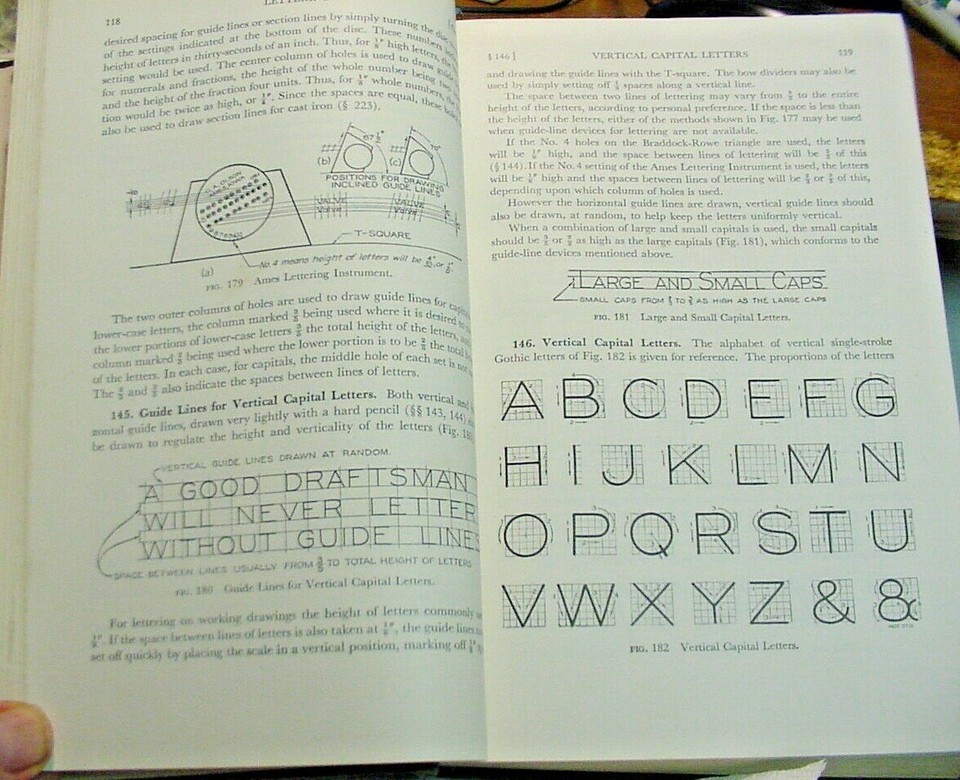 118
desired spacing for guide lines or section lines by simply turning the disc
of the settings indicated at the bottom of the disc. These numbers
height of letters in thirty-seconds of an inch. Thus, for ¼″ high letters, the
setting would be used. The center column of holes is used to draw guide
for numerals and fractions, the height of the whole number being two
and the height of the fraction four units. Thus, for ⅛″ whole numbers, the
tion would be twice as high, or ¼″. Since the spaces are equal, these holes
also be used to draw section lines for cast iron (§ 223).
67½°
75°
(b)
(c)
POSITIONS FOR DRAWING
INCLINED GUIDE LINES
T-SQUARE
No. 4 means height of letters will be 4/32, or ⅛″.
(a)
FIG. 179 Ames Lettering Instrument.
The two outer columns of holes are used to draw guide lines for
lower-case letters, the column marked ⅗ being used where it is desired
the lower portions of lower-case letters ⅗ the total height of the letters,
column marked ⅔ being used where the lower portion is to be ⅔ the total
of the letters. In each case, for capitals, the middle hole of each set is not
The ⅗ and ⅔ also indicate the spaces between lines of letters.
145. Guide Lines for Vertical Capital Letters. Both vertical and
zontal guide lines, drawn very lightly with a hard pencil (§§ 143, 144)
be drawn to regulate the height and verticality of the letters (Fig.
VERTICAL GUIDE LINES DRAWN AT RANDOM.
A GOOD DRAFTSMAN
WILL NEVER LETTER
WITHOUT GUIDE LINES
SPACE BETWEEN LINES USUALLY FROM ⅗ TO TOTAL HEIGHT OF LETTERS
FIG. 180 Guide Lines for Vertical Capital Letters.
For lettering on working drawings the height of letters commonly
⅛″. If the space between lines of letters is also taken at ⅛″, the guide lines
set off quickly by placing the scale in a vertical position, marking off ⅛″
§ 146]
VERTICAL CAPITAL LETTERS
119
and drawing the guide lines with the T-square. The bow dividers may also be
used by simply setting off ⅛ spaces along a vertical line.
The space between two lines of lettering may vary from ⅗ to the entire
height of the letters, according to personal preference. If the space is less than
the height of the letters, either of the methods shown in Fig. 177 may be used
when guide-line devices for lettering are not available.
If the No. 4 holes on the Braddock-Rowe triangle are used, the letters
will be ⅛″ high, and the space between lines of lettering will be ⅔ of this
(§ 144). If the No. 4 setting of the Ames Lettering Instrument is used, the letters
will be ⅛″ high and the spaces between lines of lettering will be ⅔ or ⅗ of this,
depending upon which column of holes is used.
However the horizontal guide lines are drawn, vertical guide lines should
also be drawn, at random, to help keep the letters uniformly vertical.
When a combination of large and small capitals is used, the small capitals
should be ⅗ or ⅔ as high as the large capitals (Fig. 181), which conforms to the
guide-line devices mentioned above.
LARGE AND SMALL CAPS
SMALL CAPS FROM ⅗ TO ⅔ AS HIGH AS THE LARGE CAPS
FIG. 181 Large and Small Capital Letters.
146. Vertical Capital Letters. The alphabet of vertical single-stroke
Gothic letters of Fig. 182 is given for reference. The proportions of the letters
A B C D E F G
H I J K L M N
O P Q R S T U
V W X Y Z & &
FIG. 182 Vertical Capital Letters.